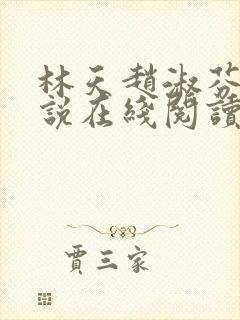 林天趙淑芬
說在綫閱讀
賈三家